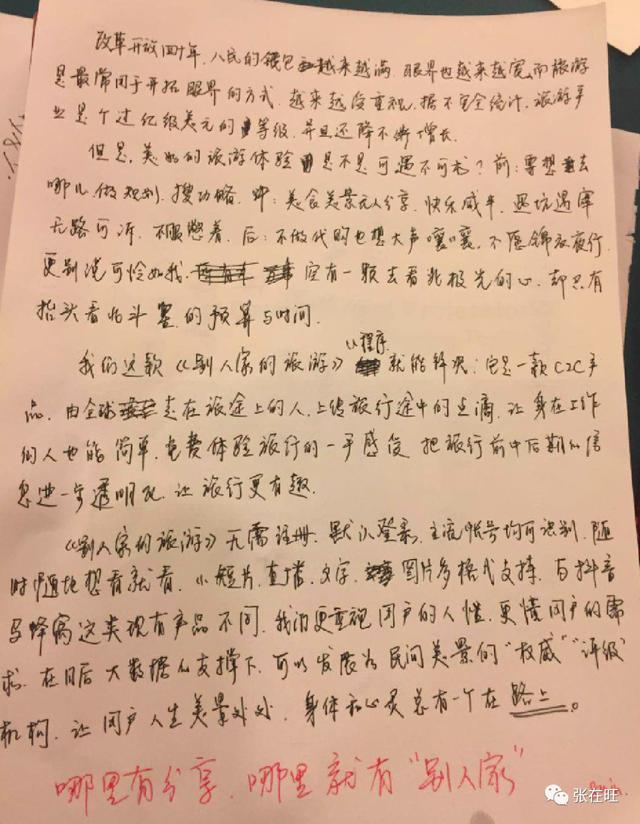 改革开放四十年,人民的钱包越来越满,眼界也越来越宽,而旅游
是最常用于开拓眼界的方式,越来越受重视,据不完全统计,旅游产
业是个过亿级美元的等级,并且还降不断增长。
但是,美好的旅游体验是不是可遇不可求?前:要想去
哪儿,做规划,搜功略,中:美食美景无人分享,快乐减半,遇坑遇宰
无路可诉,不服憋着,后:不做代购也想大声嚷嚷,不愿锦衣夜行,
更别说可怜如我,空有一颗去看北极光的心,却只有
抬头看北斗星的预算与时间。
我们这款《别人家的旅游》小程序就能解决:它是一款C2C产
品,由全球走在旅途上的人,上传旅行途中的点滴,让身在工作
的人也能简单,免费体验旅行的一手感受,把旅行前中后期的信
息进一步透明化,让旅行更有趣。
《别人家的旅游》无需注册,默认登录,主流帐号均可识别,随
时随地想看就看,小短片,直播,文字,图片多格式支持,与抖音
马蜂窝这类现有产品不同,我们更重视用户的人性,更懂用户的需
求,在日后大数据的支撑下,可以发展为民间美景的"权威""评级"
机构,让用户人生美景处处,身体和心灵总有一个在路上。
哪里有分享,哪里就有"别人家"
张在旺